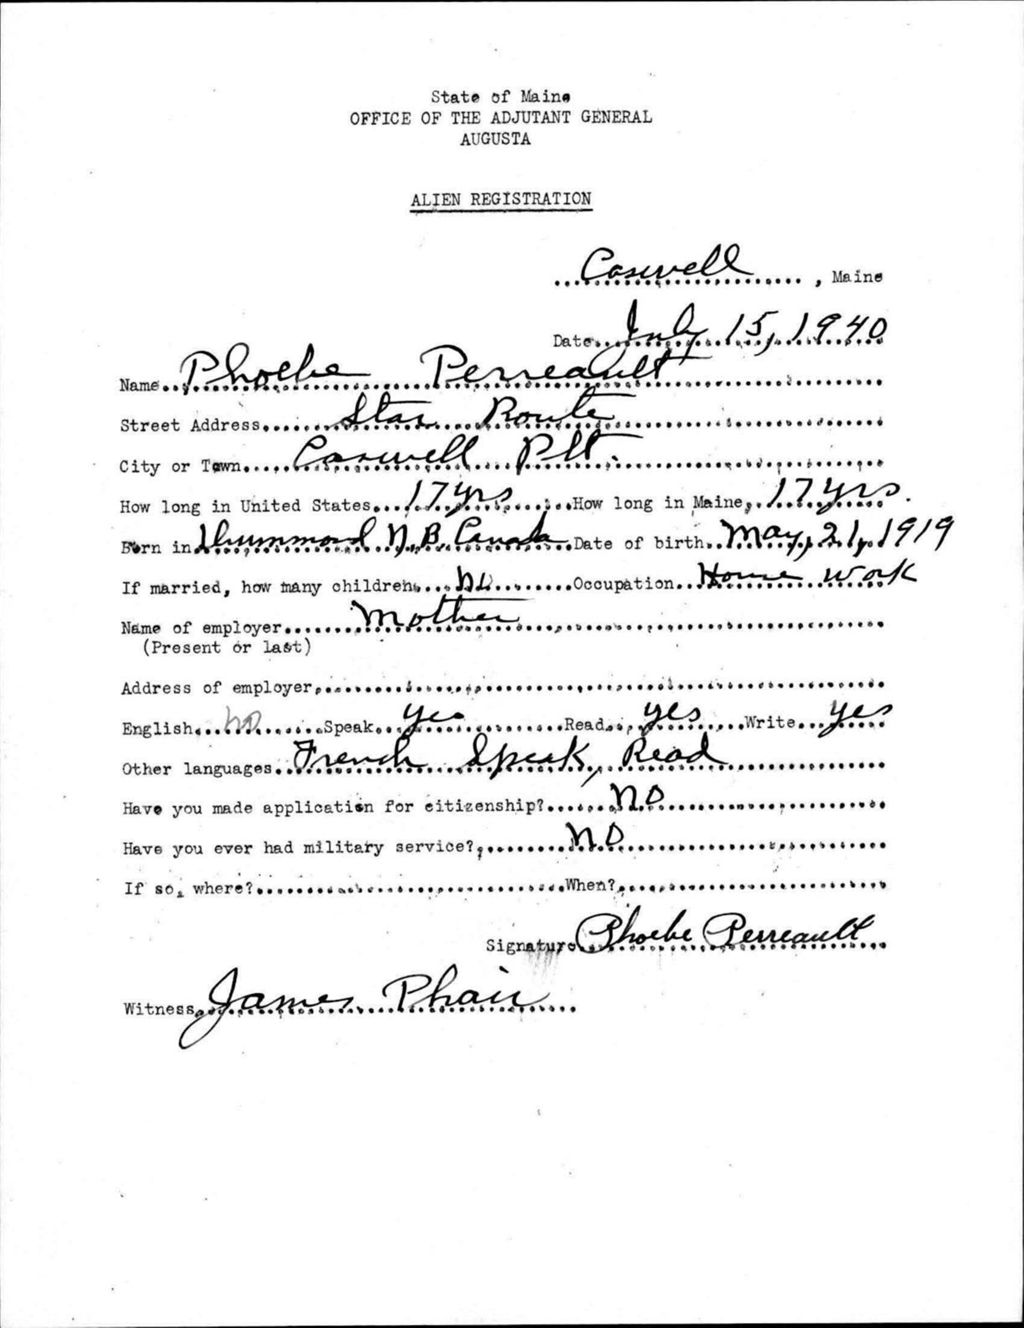 State of Maine
OFFICE OF THE ADJUTANT GENERAL
AUGUSTA
ALIEN REGISTRATION
Caswell, Maine
Date July 15, 1940
Name Phoebe Perreault
Street Address Star Route
City or Town Caswell Plt.
How long in United States 17 yrs How long in Maine 17 yrs.
Born in Drummond N.B. Canada Date of birth May, 21, 1919
If married, how many children no Occupation House work
Name of employer Mother
(Present or last)
Address of employer
English no Speak yes Read yes Write yes
Other languages French Speak, Read
Have you made application for citizenship? No
Have you ever had military service? No
If so, where? When?
Signature Phoebe Perreault
Witness James Phair